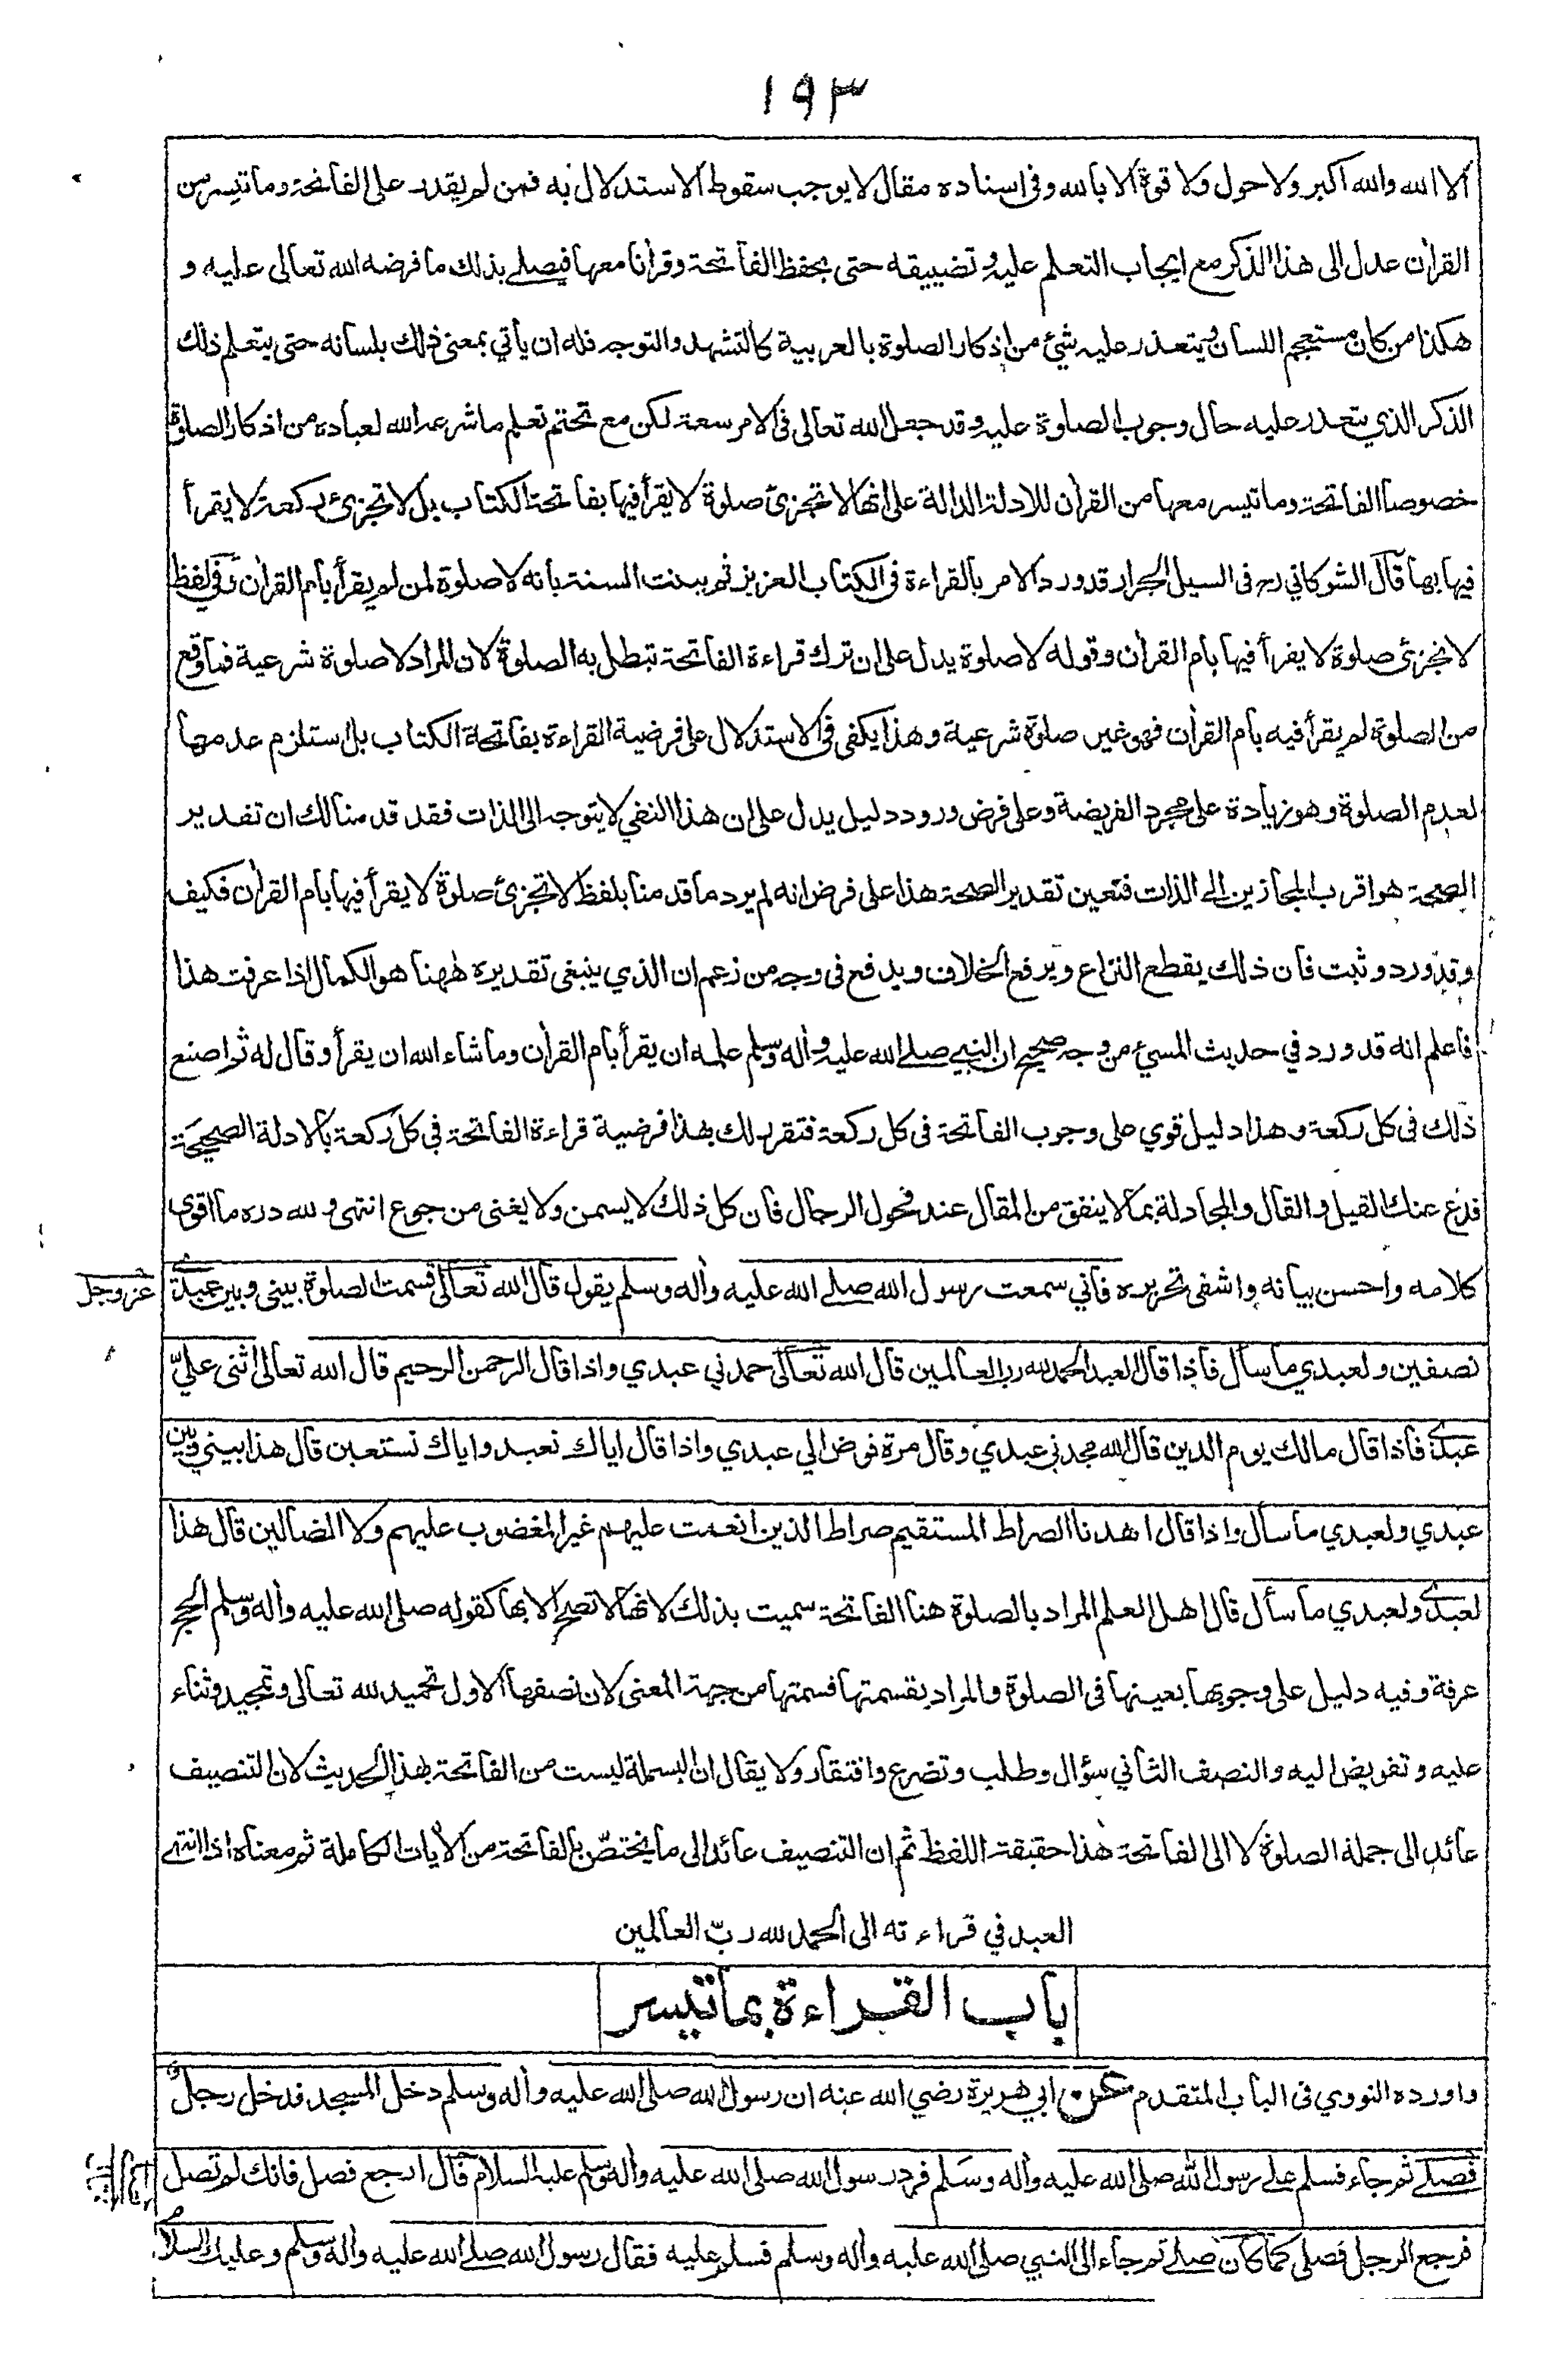 ١٩٣
الا الله والله اكبر ولا حول ولا قوة الا بالله وفى اسناده مقال لا يوجب سقوط الاستدلال به فمن لم يقدر على الفاتحة وما تيسر من
القرأن عدل الى هذا الذكر مع ايجاب التعلم عليه وتضييقه حتى يحفظ الفاتحة وقرأنا معها فيصلے بذلك ما فرضه الله تعالى عليه و
هكذا من كان مستعجم اللسان ويتعذر عليه شئ من اذكار الصلوة بالعربية كالتشهد والتوجه فله ان يأتي بمعنى ذلك بلسانه حتى يتعلم ذلك
الذكر الذي يتعذر عليه حال وجوب الصلوة عليه وقد جعل الله تعالى فى الامر سعة لكن مع تحتم تعلم ما شرعه الله لعباده من اذكار الصلوة
خصوصا الفاتحة وما تيسر معها من القرأن للادلة الدالة على انها لا تجزئ صلوة لا يقرأ فيها بفاتحة الكتاب بل لا تجزئ ركعة لا يقرأ
فيها بها قال الشوكاني رح فى السيل الجرار قد ورد الامر بالقراءة فى الكتاب العزيز ثم بينت السنة بانه لا صلوة لمن لم يقرأ بام القرأن وفي لفظ
لا تجزئ صلوة لا يقرأ فيها بام القرأن وقوله لا صلوة يدل على ان ترك قراءة الفاتحة تبطل به الصلوة لان المراد لا صلوة شرعية فما وقع
من الصلوة لم يقرأ فيه بام القرأن فهو غير صلوة شرعية وهذا يكفى فى الاستدلال على فرضية القراءة بفاتحة الكتاب بل استلزم عدمها
لعدم الصلوة وهو زيادة على مجرد الفريضة وعلى فرض ورود دليل يدل على ان هذا النفي لا يتوجه الى الذات فقد قدمنا لك ان تقدير
الصحة هو اقرب المجازين الے الذات فتعين تقدير الصحة هذا على فرض انه لم يرد ما قدمنا بلفظ لا تجزئ صلوة لا يقرأ فيها بام القرأن فكيف
وقد ورد وثبت فان ذلك يقطع النزاع ويرفع الخلاف ويدفع فى وجه من زعم ان الذي ينبغى تقديره ههنا هو الكمال اذا عرفت هذا
فاعلم انه قد ورد في حديث المسيء من وجه صحيح ان النبي صلے الله عليه وأله وسلم علمه ان يقرأ بام القرأن وما شاء الله ان يقرأ وقال له ثم اصنع
ذلك فى كل ركعة وهذا دليل قوي على وجوب الفاتحة فى كل ركعة فتقرر لك بهذا فرضية قراءة الفاتحة فى كل ركعة بالادلة الصحيحة
فدع عنك القيل والقال والمجادلة بما لا ينفق من المقال عند فحول الرجال فان كل ذلك لا يسمن ولا يغنى من جوع انتهى ولله دره ما اقوى
كلامه واحسن بيانه واشفى تحريره فاني سمعت رسول الله صلے الله عليه وأله وسلم يقول قال الله تعالى قسمت الصلوة بينى وبين عبدے
عز وجل
نصفين ولعبدي ما سأل فاذا قال العبد الحمد لله رب العالمين قال الله تعالى حمدني عبدي واذا قال الرحمن الرحيم قال الله تعالى اثنى عليّ
عبدے فاذا قال مالك يوم الدين قال الله مجدني عبدي وقال مرة فوض الي عبدي واذا قال اياك نعبد واياك نستعين قال هذا بيني وبين
عبدي ولعبدي ما سأل واذا قال اهدنا الصراط المستقيم صراط الذين انعمت عليهم غير المغضوب عليهم ولا الضالين قال هذا
لعبدے ولعبدي ما سأل قال اهل العلم المراد بالصلوة هنا الفاتحة سميت بذلك لانها لا تصح الا بها كقوله صلى الله عليه وأله وسلم الحج
عرفة وفيه دليل على وجوبها بعينها فى الصلوة والمراد بقسمتها قسمتها من جهة المعنى لان نصفها الاول تحميد لله تعالى وتمجيد وثناء
عليه وتفويض اليه والنصف الثاني سؤال وطلب وتضرع وافتقار ولا يقال ان البسملة ليست من الفاتحة بهذا الحديث لان التنصيف
عائد الى جملة الصلوة لا الى الفاتحة هذا حقيقة اللفظ ثم ان التنصيف عائد الى ما يختصّ بالفاتحة من الأيات الكاملة ثم معناه اذا انتهى
العبد في قراءته الى الحمد لله ربّ العالمين
باب القراءة بما تيسر
واورده النووي فى الباب المتقدم عن ابي هريرة رضي الله عنه ان رسول الله صلى الله عليه وأله وسلم دخل المسجد فدخل رجل
فصلے ثم جاء فسلم علے رسول الله صلى الله عليه وأله وسلم فرد رسول الله صلى الله عليه وأله وسلم عليه السلام قال ارجع فصل فانك لم تصل
فرجع الرجل فصلى كما كان صلے ثم جاء الى النبي صلى الله عليه وأله وسلم فسلم عليه فقال رسول الله صلے الله عليه وأله وسلم وعليك السلام